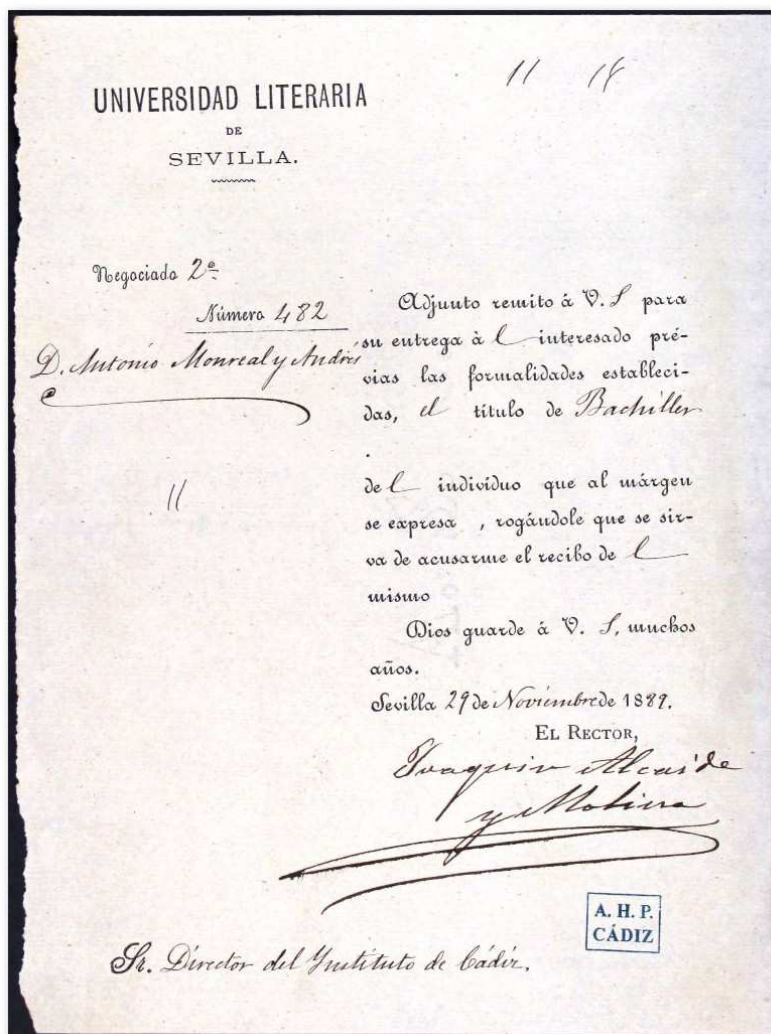 11 18
UNIVERSIDAD LITERARIA
DE
SEVILLA.
Negociado 2º
Número 482
D. Antonio Monreal y Andrés
11
Adjunto remito á V. S para
su entrega á l interesado pré-
vias las formalidades estableci-
das, el título de Bachiller
.
de l indivíduo que al márgen
se expresa , rogándole que se sir-
va de acusarme el recibo de l
mismo
Dios guarde á V. S, muchos
años.
Sevilla 29 de Noviembre de 1889.
EL RECTOR,
Joaquin Alcaide
y Molina
A. H. P.
CÁDIZ
Sr. Director del Instituto de Cádiz.